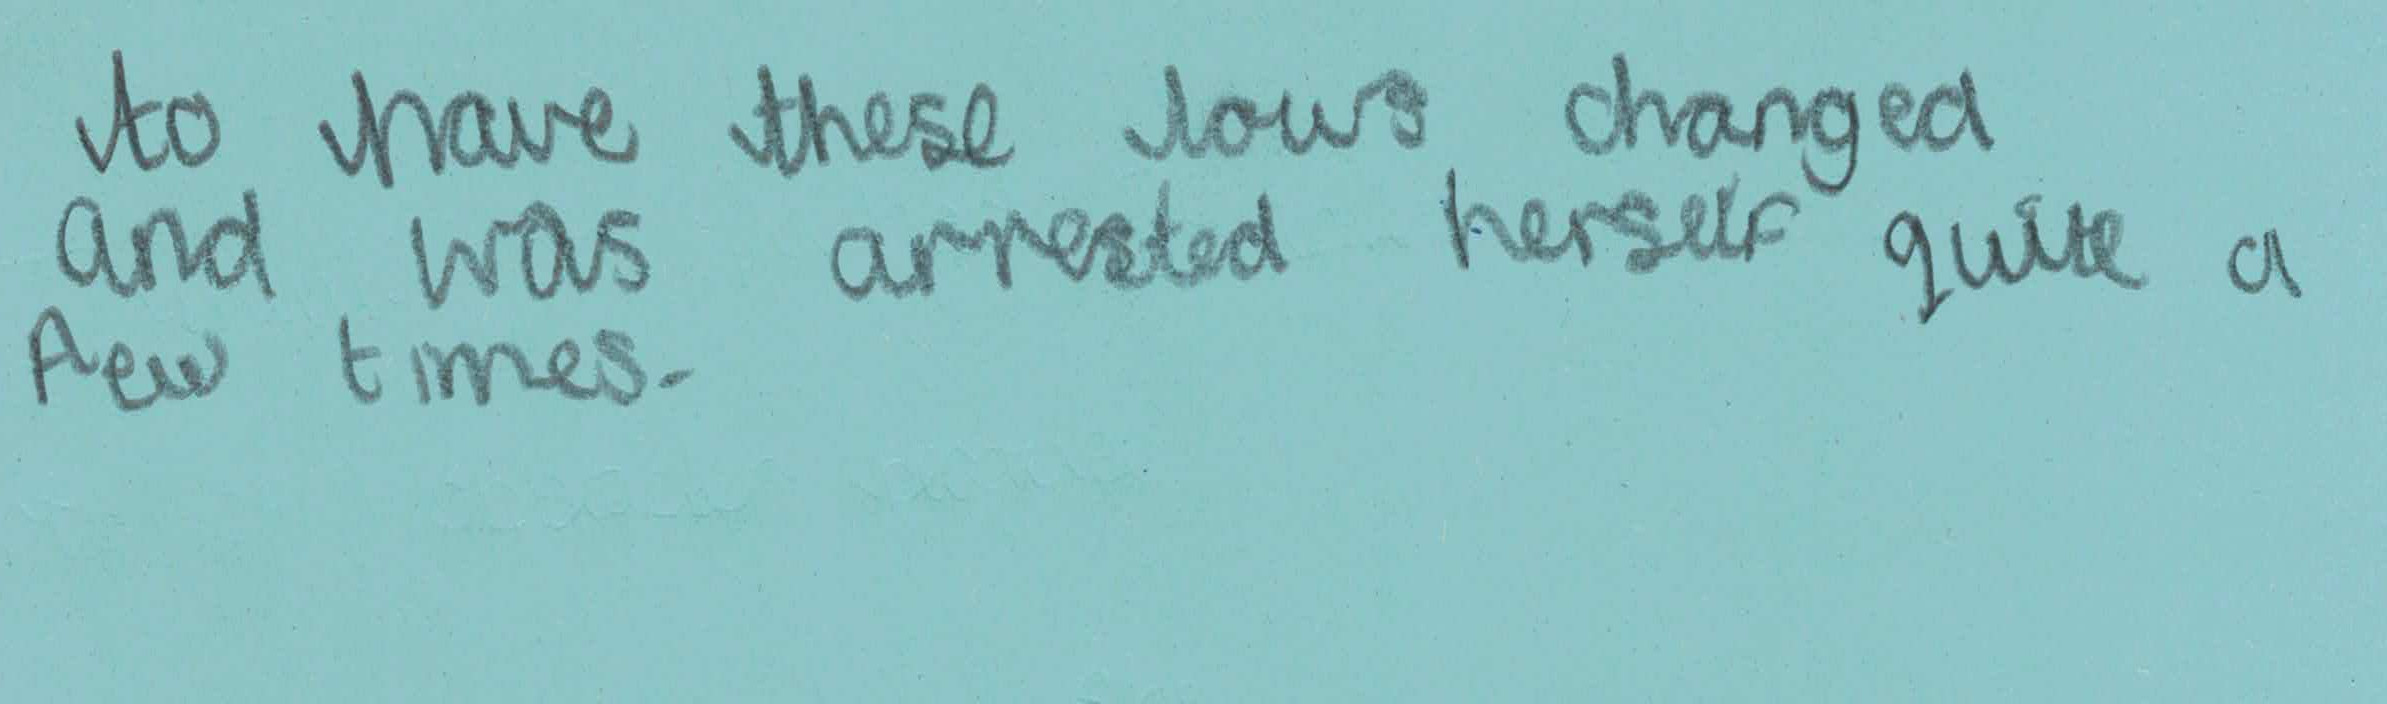 to have these lows changed
and was arrested herself quite a
few times.